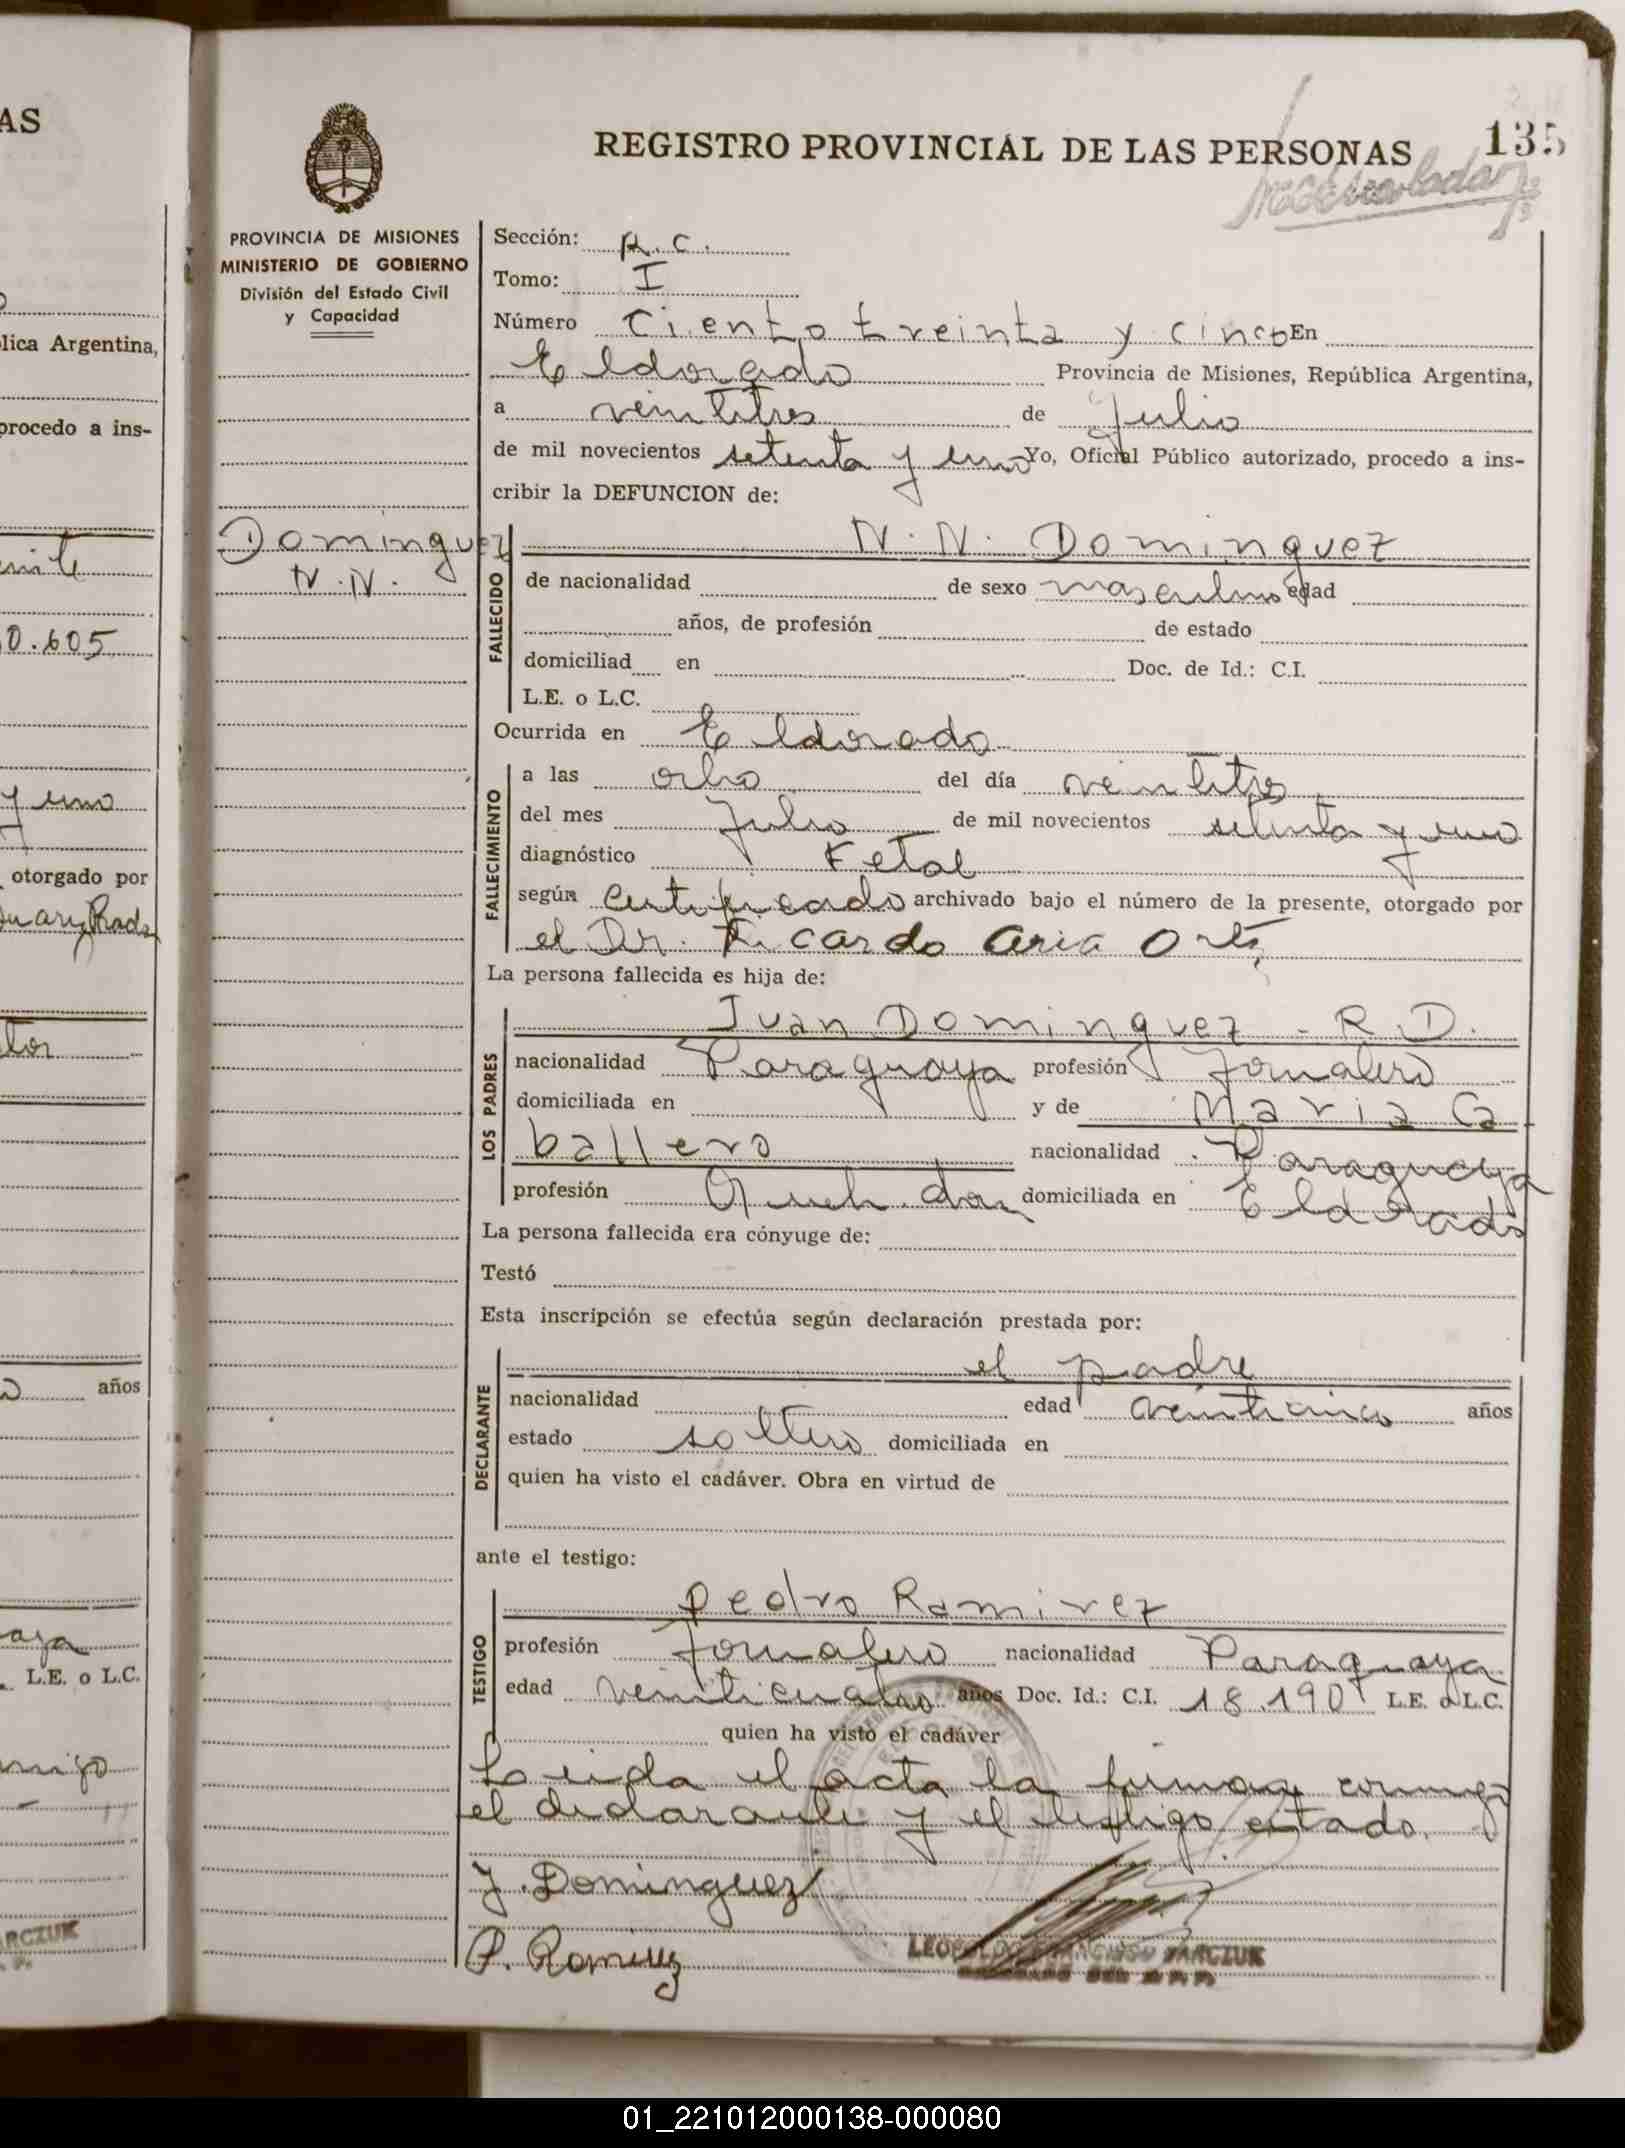 AS
REGISTRO PROVINCIAL DE LAS PERSONAS 135
PROVINCIA DE MISIONES
MINISTERIO DE GOBIERNO
División del Estado Civil
y Capacidad
Sección: R.C.
Tomo: I
Número Ciento treinta y cinco En
Eldorado Provincia de Misiones, República Argentina,
a veintitres de Julio
de mil novecientos setenta y uno Yo, Oficial Público autorizado, procedo a ins-
cribir la DEFUNCION de:
Dominguez
N.N.
FALLECIDO
N.N. Dominguez
de nacionalidad de sexo masculino edad
años, de profesión de estado
domiciliad en Doc. de Id.: C.I.
L.E. o L.C.
Ocurrida en Eldorado
FALLECIMIENTO
a las ocho del día veintitres
del mes Julio de mil novecientos setenta y uno
diagnóstico Fetal
según certificado archivado bajo el número de la presente, otorgado por
el Dr. Ricardo Aria
La persona fallecida es hija de:
LOS PADRES
Juan Dominguez - R.D.
nacionalidad Paraguaya profesión Jornalero
domiciliada en y de Maria Ca
ballero nacionalidad Paraguaya
profesión domiciliada en Eldorado
La persona fallecida era cónyuge de:
Testó
Esta inscripción se efectúa según declaración prestada por:
DECLARANTE
el padre
nacionalidad edad veinticinco años
estado soltero domiciliada en
quien ha visto el cadáver. Obra en virtud de
ante el testigo:
TESTIGO
Pedro Ramirez
profesión Jornalero nacionalidad Paraguaya
edad veinticuatro años Doc. Id.: C.I. 18.190 L.E. o L.C.
quien ha visto el cadáver
Leida el acta la firman conmigo
el declarante y el testigo citado.
J. Dominguez
P. Ramirez
LEOPOLDO FRANCISCO
lica Argentina,
procedo a ins-
0.605
y uno
otorgado por
años
L.E. o L.C.
ARCZUK
01_221012000138-000080